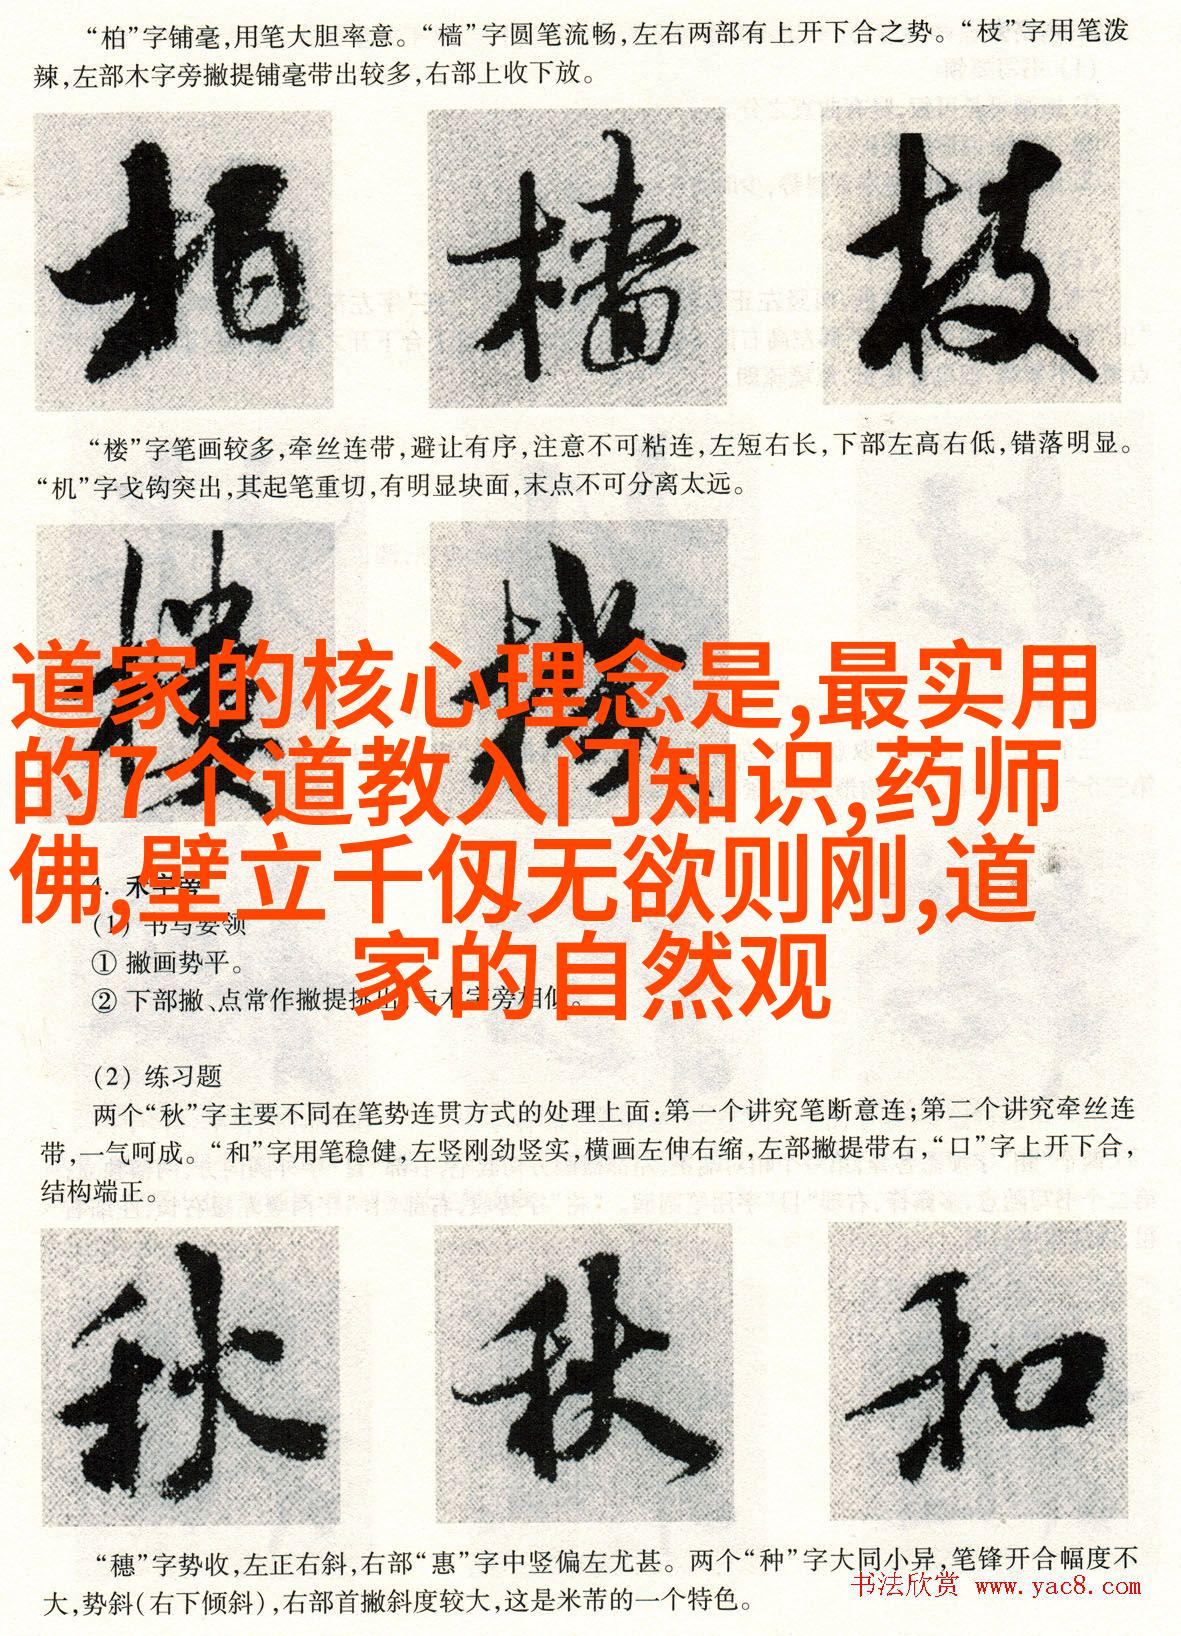 “柏”字铺毫,用笔大胆率意。“樯”字圆笔流畅,左右两部有上开下合之势。“枝”字用笔泼
辣,左部木字旁撇提铺毫带出较多,右部上收下放。
柏 樯 枝
“楼”字笔画较多,牵丝连带,避让有序,注意不可粘连,左短右长,下部左高右低,错落明显。
“机”字戈钩突出,其起笔重切,有明显块面,末点不可分离太远。
楼 机
道家的核心理念是,最实用
的7个道教入门知识,药师
佛,壁立千仞无欲则刚,道
家的自然观
(1) 书写要领
① 撇画势平。
② 下部撇、点常作撇提挑出,与木字旁相似。
(2) 练习题
两个“秋”字主要不同在笔势连贯方式的处理上面:第一个讲究笔断意连;第二个讲究牵丝连
带,一气呵成。“和”字用笔稳健,左竖刚劲竖实,横画左伸右缩,左部撇提带右,“口”字上开下合,
结构端正。
秋 秋 和
“穗”字势收,左正右斜,右部“惠”字中竖偏左尤甚。两个“种”字大同小异,笔锋开合幅度不
大,势斜(右下倾斜),右部首撇斜度较大,这是米芾的一个特色。
书法欣赏 www.yac8.com